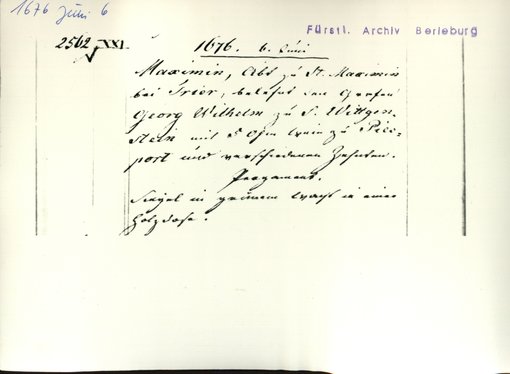 1676 Juni 6
Fürstl. Archiv Berleburg
2562 XXI.
1676. 6. Juni
Maximin, Abt zu St. Maximin
bei Trier, belehnt den Grafen
Georg Wilhelm zu S. Wittgen-
stein mit 5 Ohm Wein zu Pies-
port und verschiedenen Zehnten.
Pergament.
Siegel in grünem Wachs in einer
Holzdose.